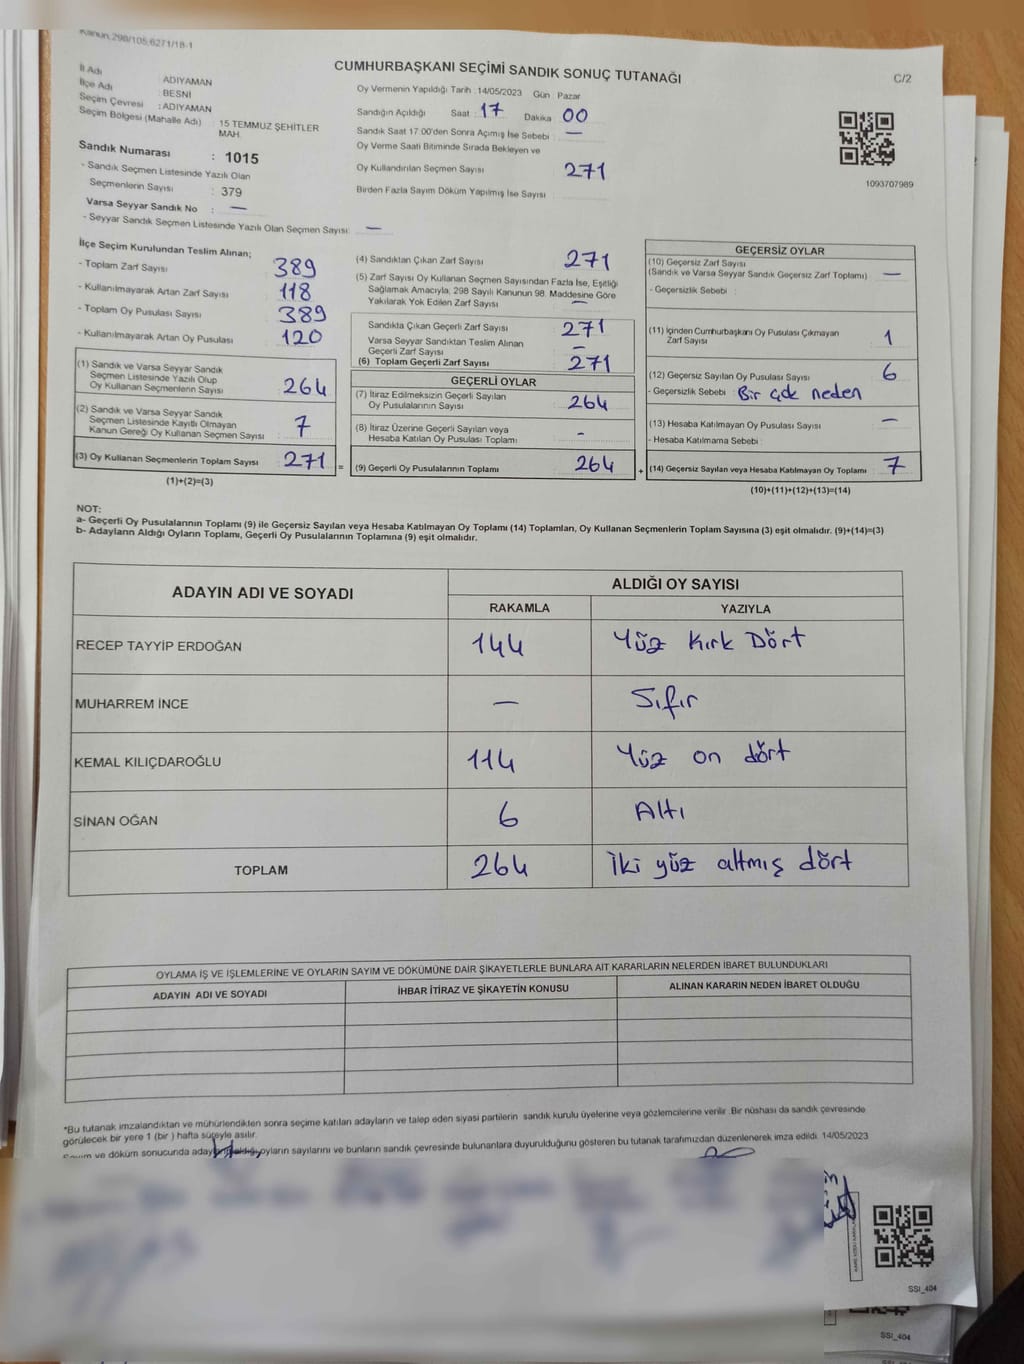 Kanun, 298/105,6271/18-1
CUMHURBAŞKANI SEÇİMİ SANDIK SONUÇ TUTANAĞI
C/2
İl Adı : ADIYAMAN
İlçe Adı : BESNİ
Seçim Çevresi : ADIYAMAN
Seçim Bölgesi (Mahalle Adı) : 15 TEMMUZ ŞEHİTLER MAH.
Sandık Numarası : 1015
- Sandık Seçmen Listesinde Yazılı Olan
Seçmenlerin Sayısı : 379
Varsa Seyyar Sandık No : —
- Seyyar Sandık Seçmen Listesinde Yazılı Olan Seçmen Sayısı: —
Oy Vermenin Yapıldığı Tarih : 14/05/2023 Gün : Pazar
Sandığın Açıldığı Saat : 17 Dakika : 00
Sandık Saat 17.00'den Sonra Açımış İse Sebebi : —
Oy Verme Saati Bitiminde Sırada Bekleyen ve
Oy Kullandırılan Seçmen Sayısı : 271
Birden Fazla Sayım Döküm Yapılmış İse Sayısı :
1093707989
İlçe Seçim Kurulundan Teslim Alınan;
- Toplam Zarf Sayısı : 389
- Kullanılmayarak Artan Zarf Sayısı : 118
- Toplam Oy Pusulası Sayısı : 389
- Kullanılmayarak Artan Oy Pusulası : 120
(1) Sandık ve Varsa Seyyar Sandık
Seçmen Listesinde Yazılı Olup
Oy Kullanan Seçmenlerin Sayısı : 264
(2) Sandık ve Varsa Seyyar Sandık
Seçmen Listesinde Kayıtlı Olmayan
Kanun Gereği Oy Kullanan Seçmen Sayısı : 7
(3) Oy Kullanan Seçmenlerin Toplam Sayısı : 271 =
(1)+(2)=(3)
(4) Sandıktan Çıkan Zarf Sayısı : 271
(5) Zarf Sayısı Oy Kullanan Seçmen Sayısından Fazla İse, Eşitliği
Sağlamak Amacıyla, 298 Sayılı Kanunun 98. Maddesine Göre
Yakılarak Yok Edilen Zarf Sayısı : —
Sandıkta Çıkan Geçerli Zarf Sayısı : 271
Varsa Seyyar Sandıktan Teslim Alınan
Geçerli Zarf Sayısı : —
(6) Toplam Geçerli Zarf Sayısı : 271
GEÇERLİ OYLAR
(7) İtiraz Edilmeksizin Geçerli Sayılan
Oy Pusulalarının Sayısı : 264
(8) İtiraz Üzerine Geçerli Sayılan veya
Hesaba Katılan Oy Pusulası Toplamı : -
(9) Geçerli Oy Pusulalarının Toplamı : 264 +
GEÇERSİZ OYLAR
(10) Geçersiz Zarf Sayısı
(Sandık ve Varsa Seyyar Sandık Geçersiz Zarf Toplamı) : —
- Geçersizlik Sebebi :
(11) İçinden Cumhurbaşkanı Oy Pusulası Çıkmayan
Zarf Sayısı : 1
(12) Geçersiz Sayılan Oy Pusulası Sayısı : 6
- Geçersizlik Sebebi : Bir çok neden
(13) Hesaba Katılmayan Oy Pusulası Sayısı : —
- Hesaba Katılmama Sebebi :
(14) Geçersiz Sayılan veya Hesaba Katılmayan Oy Toplamı : 7
(10)+(11)+(12)+(13)=(14)
NOT:
a- Geçerli Oy Pusulalarının Toplamı (9) ile Geçersiz Sayılan veya Hesaba Katılmayan Oy Toplamı (14) Toplamları, Oy Kullanan Seçmenlerin Toplam Sayısına (3) eşit olmalıdır. (9)+(14)=(3)
b- Adayların Aldığı Oyların Toplamı, Geçerli Oy Pusulalarının Toplamına (9) eşit olmalıdır.
ADAYIN ADI VE SOYADI
ALDIĞI OY SAYISI
RAKAMLA YAZIYLA
RECEP TAYYİP ERDOĞAN 144 Yüz Kırk Dört
MUHARREM İNCE — Sıfır
KEMAL KILIÇDAROĞLU 114 Yüz on dört
SİNAN OĞAN 6 Altı
TOPLAM 264 İki yüz altmış dört
OYLAMA İŞ VE İŞLEMLERİNE VE OYLARIN SAYIM VE DÖKÜMÜNE DAİR ŞİKAYETLERLE BUNLARA AİT KARARLARIN NELERDEN İBARET BULUNDUKLARI
ADAYIN ADI VE SOYADI İHBAR İTİRAZ VE ŞİKAYETİN KONUSU ALINAN KARARIN NEDEN İBARET OLDUĞU
*Bu tutanak imzalandıktan ve mühürlendikten sonra seçime katılan adayların ve talep eden siyasi partilerin sandık kurulu üyelerine veya gözlemcilerine verilir. Bir nüshası da sandık çevresinde
görülecek bir yere 1 (bir ) hafta süreyle asılır.
Sayım ve döküm sonucunda adayların aldığı oyların sayılarını ve bunların sandık çevresinde bulunanlara duyurulduğunu gösteren bu tutanak tarafımızdan düzenlenerek imza edildi. 14/05/2023
SSI_404
SSI_404